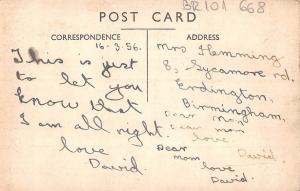 BR101 668
POST CARD
CORRESPONDENCE
ADDRESS
16-3.56.
This is just
to let you
know that
I am all right.
love
David.
Mrs Flemming
8, Sycamore rd.
Erdington,
Birmingham,
Dear Mom
Dear mom
love
David
Dear
mom
love
David.